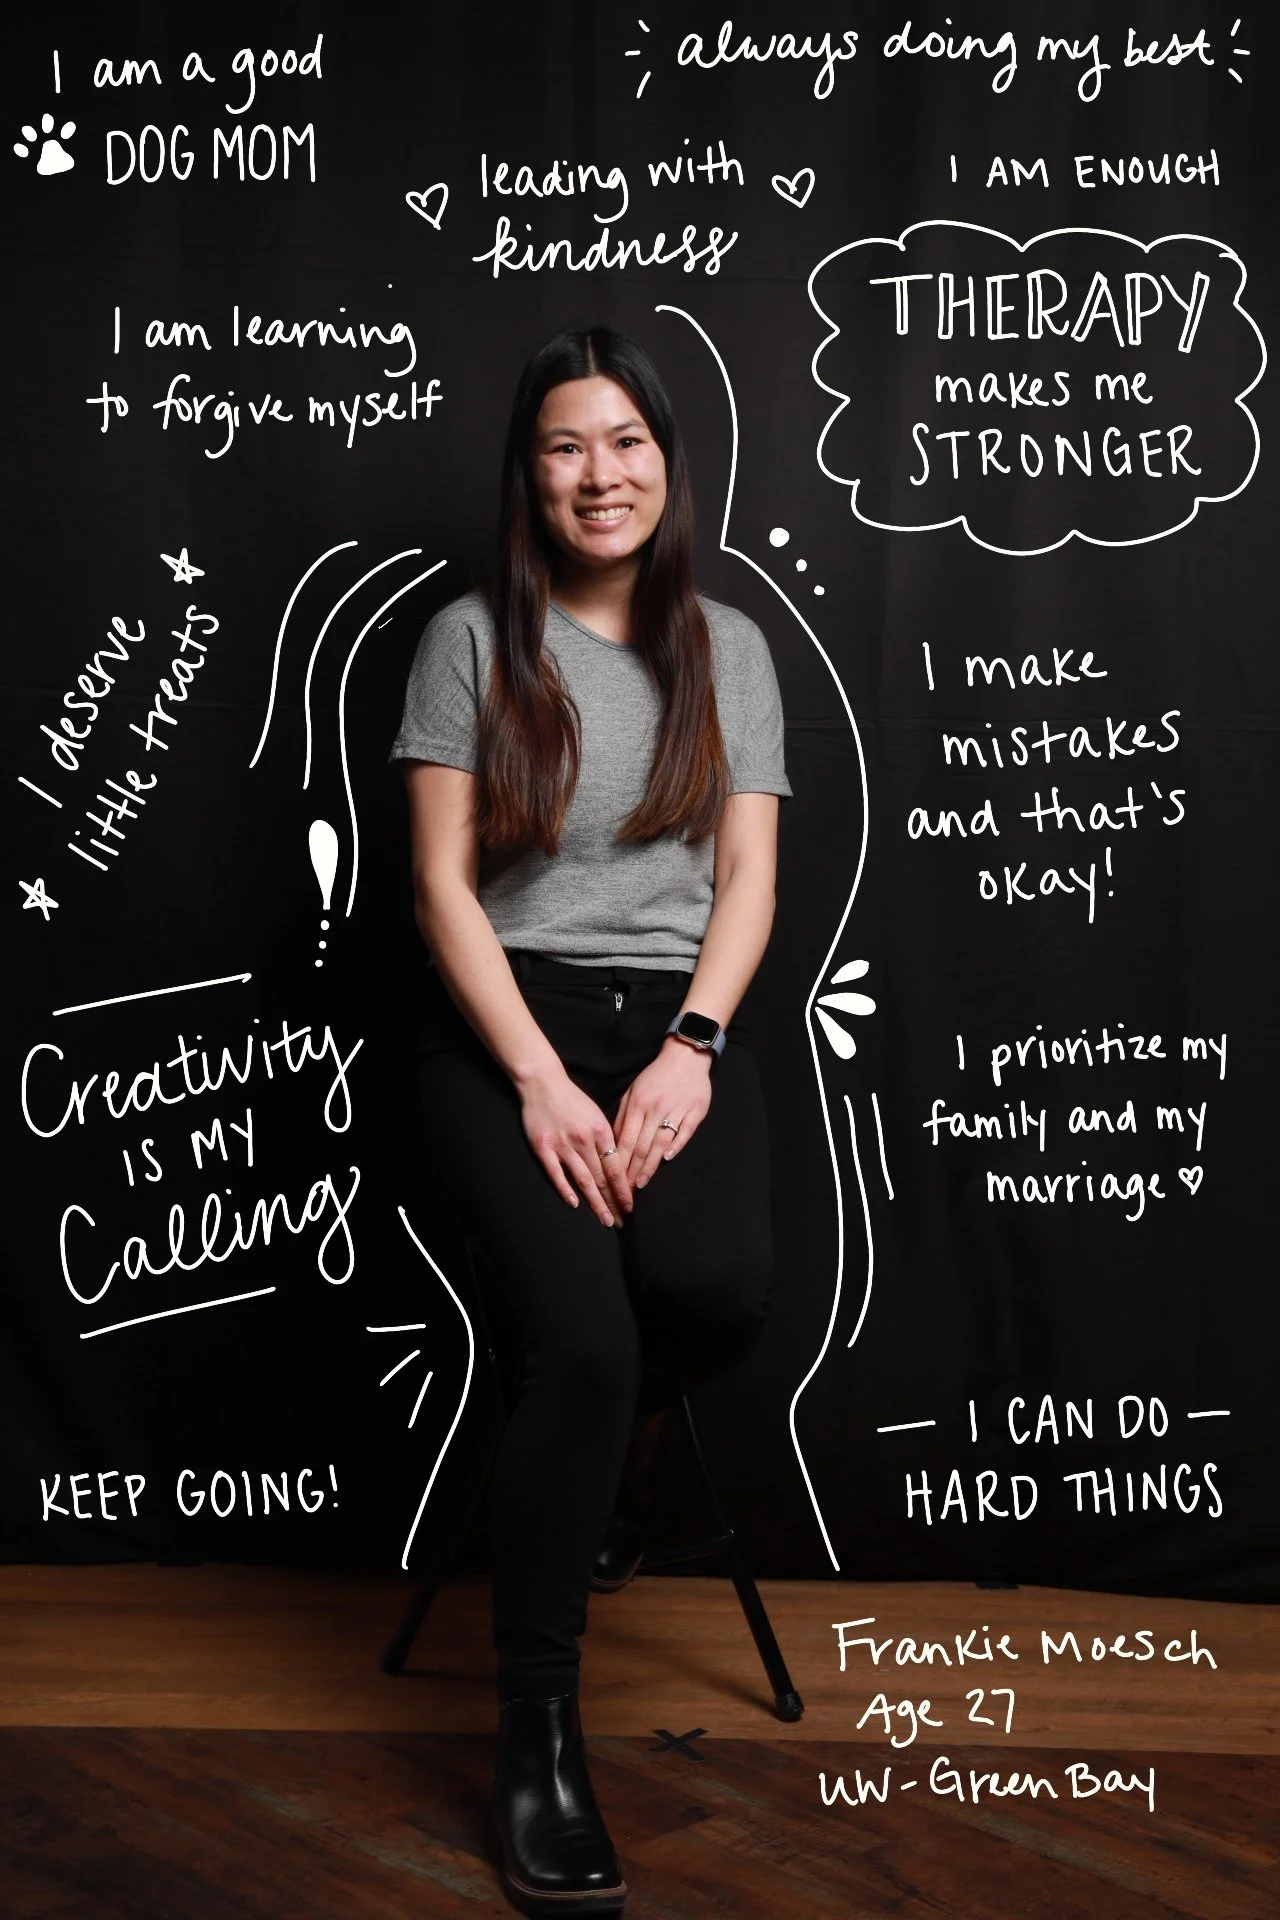 I am a good
DOG MOM
always doing my best
leading with
kindness
I AM ENOUGH
THERAPY
makes me
STRONGER
I am learning
to forgive myself
I deserve
little treats
I make
mistakes
and that's
okay!
Creativity
IS MY
Calling
I prioritize my
family and my
marriage
KEEP GOING!
I CAN DO
HARD THINGS
Frankie Moesch
Age 27
UW-Green Bay